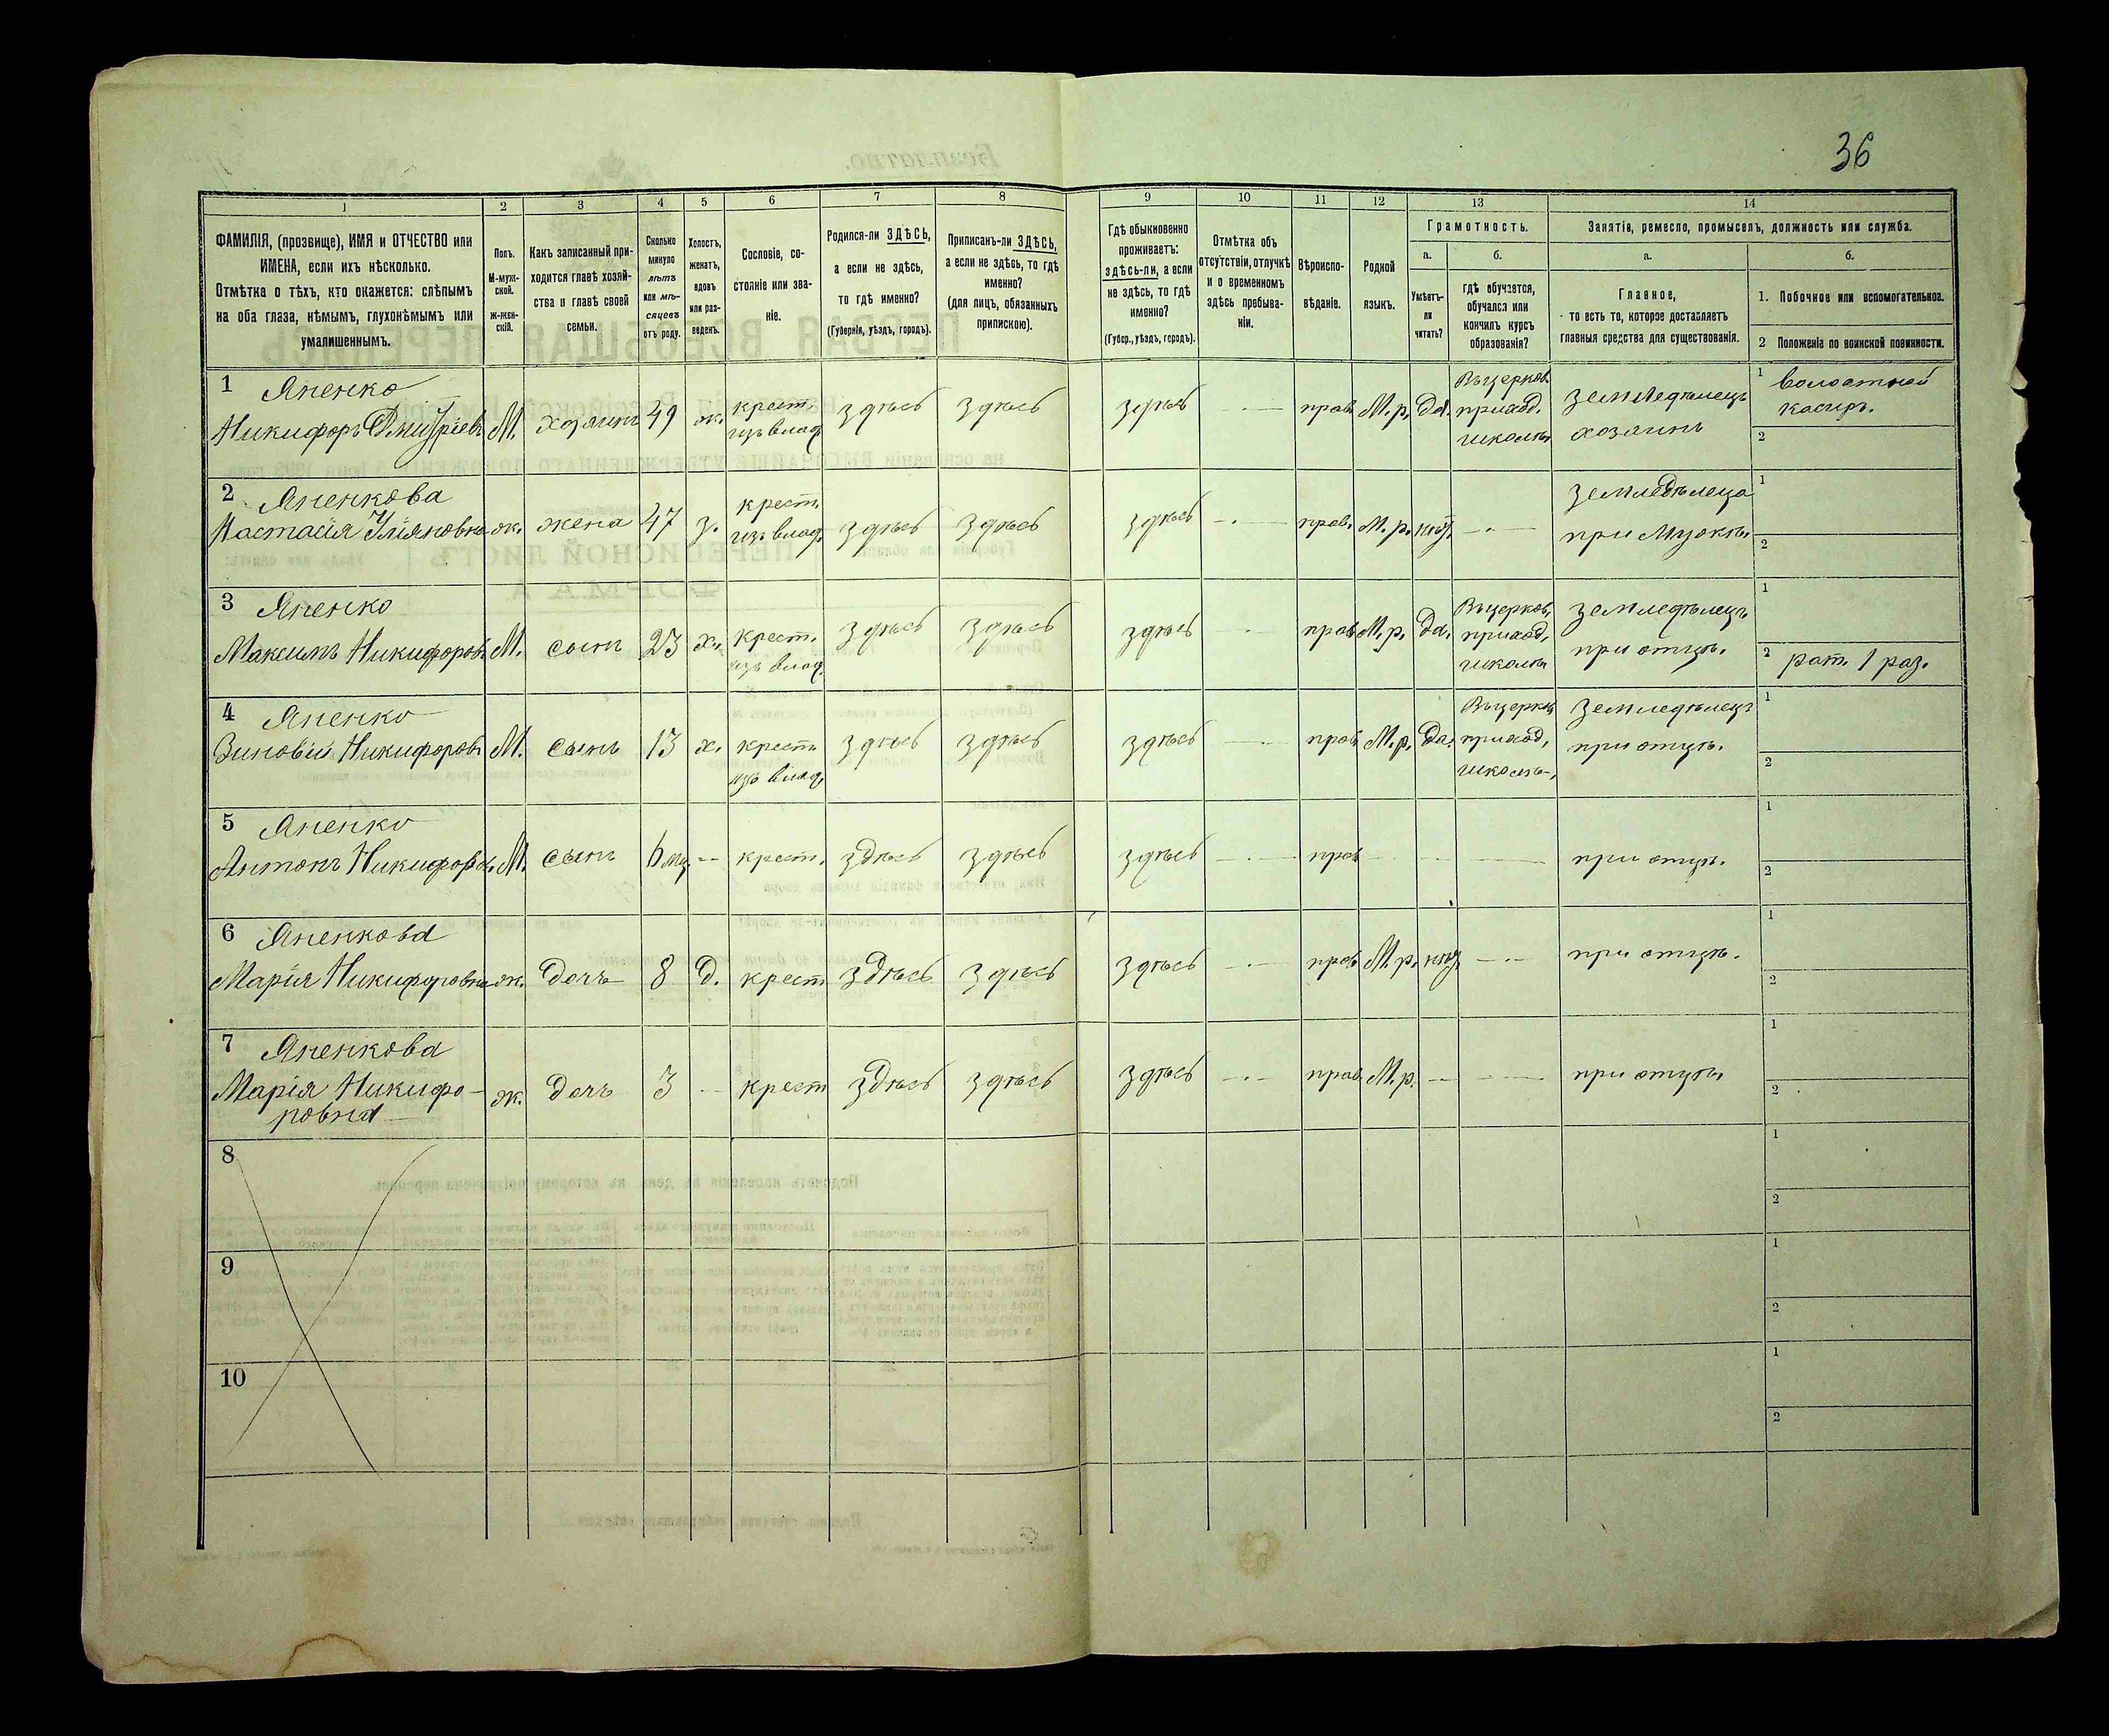 36
1 2 3 4 5 6 7 8 9 10 11 12 13 14
ФАМИЛІЯ, (прозвище), ИМЯ и ОТЧЕСТВО или
ИМЕНА, если ихъ нѣсколько.
Отмѣтка о тѣхъ, кто окажется: слѣпымъ
на оба глаза, нѣмымъ, глухонѣмымъ или
умалишеннымъ.
Полъ.
М-муж-
ской.
Ж-жен-
скій.
Какъ записанный при-
ходится главѣ хозяй-
ства и главѣ своей
семьи.
Сколько
минуло
лѣтъ
или мѣ-
сяцевъ
отъ роду.
Холостъ,
женатъ,
вдовъ
или раз-
веденъ.
Сословіе, со-
стояніе или зва-
ніе.
Родился-ли ЗДѢСЬ,
а если не здѣсь,
то гдѣ именно?
(Губернія, уѣздъ, городъ).
Приписанъ-ли ЗДѢСЬ,
а если не здѣсь, то гдѣ
именно?
(для лицъ, обязанныхъ
припискою).
Гдѣ обыкновенно
проживаетъ:
здѣсь-ли, а если
не здѣсь, то гдѣ
именно?
(Губер., уѣздъ, городъ).
Отмѣтка объ
отсутствіи, отлучкѣ
и о временномъ
здѣсь пребыва-
ніи.
Вѣроиспо-
вѣданіе.
Родной
языкъ.
Грамотность.
а.
Умѣетъ-
ли
читать?
б.
гдѣ обучается,
обучался или
кончилъ курсъ
образованія?
Занятіе, ремесло, промыселъ, должность или служба.
а.
Главное,
то есть то, которое доставляетъ
главныя средства для существованія.
б.
1. Побочное или вспомогательное.
2 Положеніе по воинской повинности.
1 Яненко
Никифоръ Дмитріевъ М. хозяинъ 49 ж. крест. изъ влад. здѣсь здѣсь здѣсь прав. М.р. да.
Въ церков.
приход.
школѣ
земледѣлецъ
хозяинъ
1 волостной
касиръ.
2
2 Яненкова
Настасія Уліяновна ж. жена 47 з. крест. изъ влад. здѣсь здѣсь здѣсь прав. М.р. нѣт.
земледѣлеца
при мужѣ.
1
2
3 Яненко
Максимъ Никифоровъ М. сынъ 23 х. крест. изъ влад. здѣсь здѣсь здѣсь прав. М.р. да.
Въ церков.
приход.
школѣ
земледѣлецъ
при отцѣ.
1
2 рат. 1 раз.
4 Яненко
Зиновій Никифоровъ М. сынъ 13 х. крест. изъ влад. здѣсь здѣсь здѣсь прав М.р. да.
Въ церков
приход.
школѣ.
земледѣлецъ
при отцѣ.
1
2
5 Яненко
Антонъ Никифоров. М. сынъ 6 мц. -- крест. здѣсь здѣсь здѣсь прав при отцѣ.
1
2
6 Яненкова
Марія Никифоровна ж. дочь 8 д. крест здѣсь здѣсь здѣсь прав М.р. нѣт при отцѣ.
1
2
7 Яненкова
Марія Никифо-
ровна ж. дочь 3 крест здѣсь здѣсь здѣсь прав М.р. при отцѣ
1
2
8
1
2
9
1
2
10
1
2